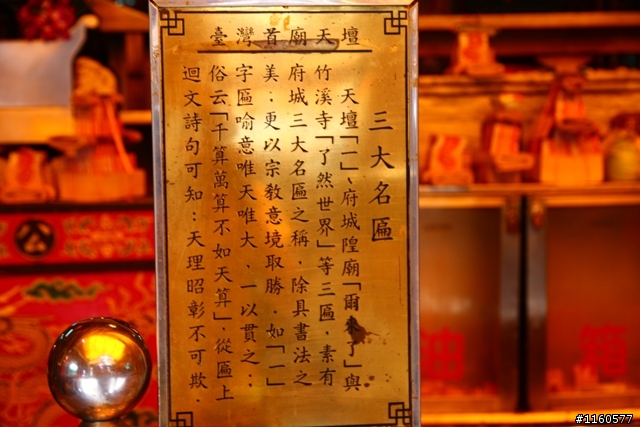 臺灣首廟天壇
三大名匾
天壇「一」、府城隍廟「爾來了」與
竹溪寺「了然世界」等三匾，素有
府城三大名匾之稱．除具書法之
美；更以宗教意境取勝．如「一」
字匾喻意唯天唯大、一以貫之；
俗云「千算萬算不如天算」，從匾上
迴文詩句可知：天理昭彰不可欺．
油
箱
#1160577